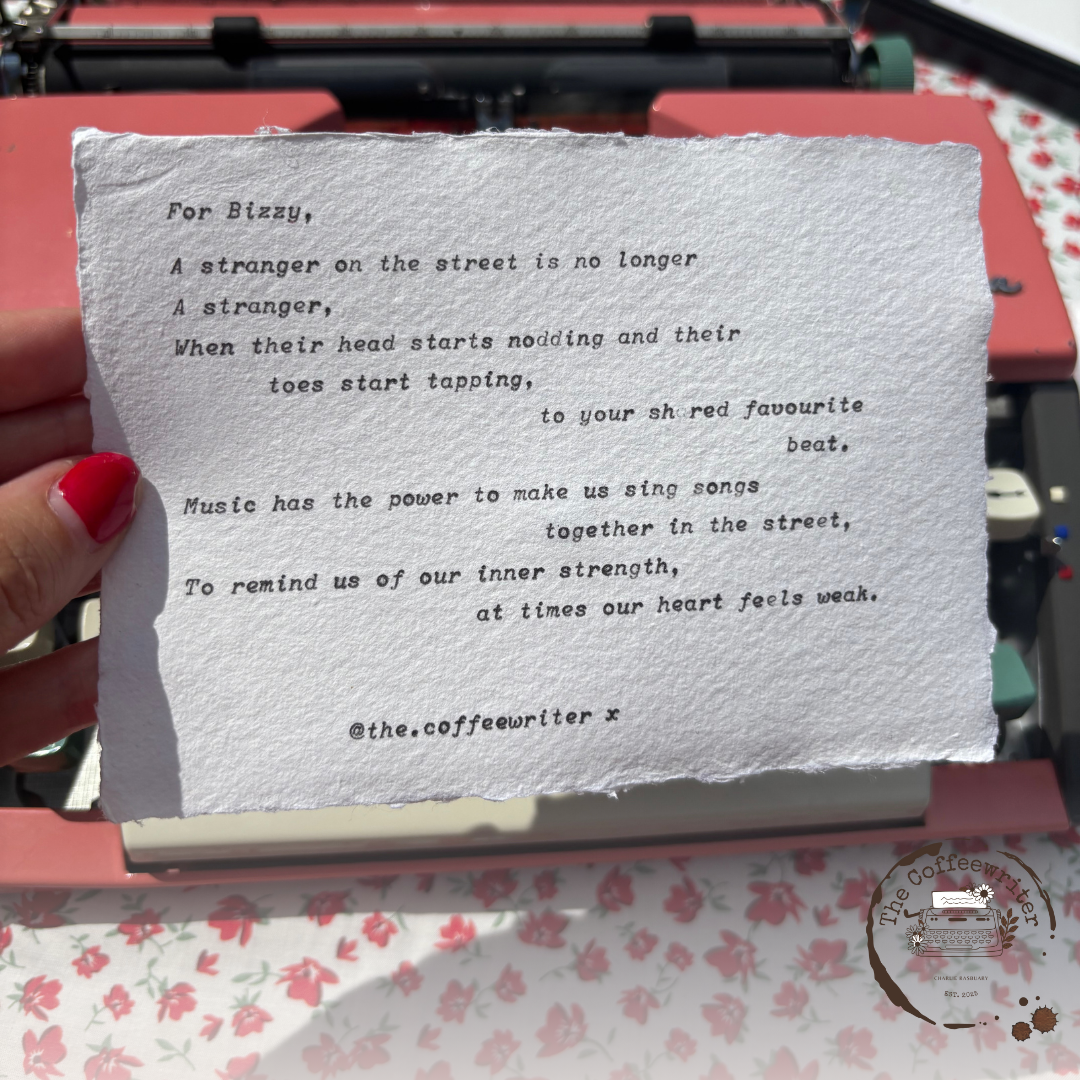 For Bizzy,
A stranger on the street is no longer
A stranger,
When their head starts nodding and their
toes start tapping,
to your sh red favourite
beat.
Music has the power to make us sing songs
together in the street,
To remind us of our inner strength,
at times our heart feels weak.
@the.coffeewriter x
The Coffeewriter
CHARLIE BASQUARY
EST. 2025